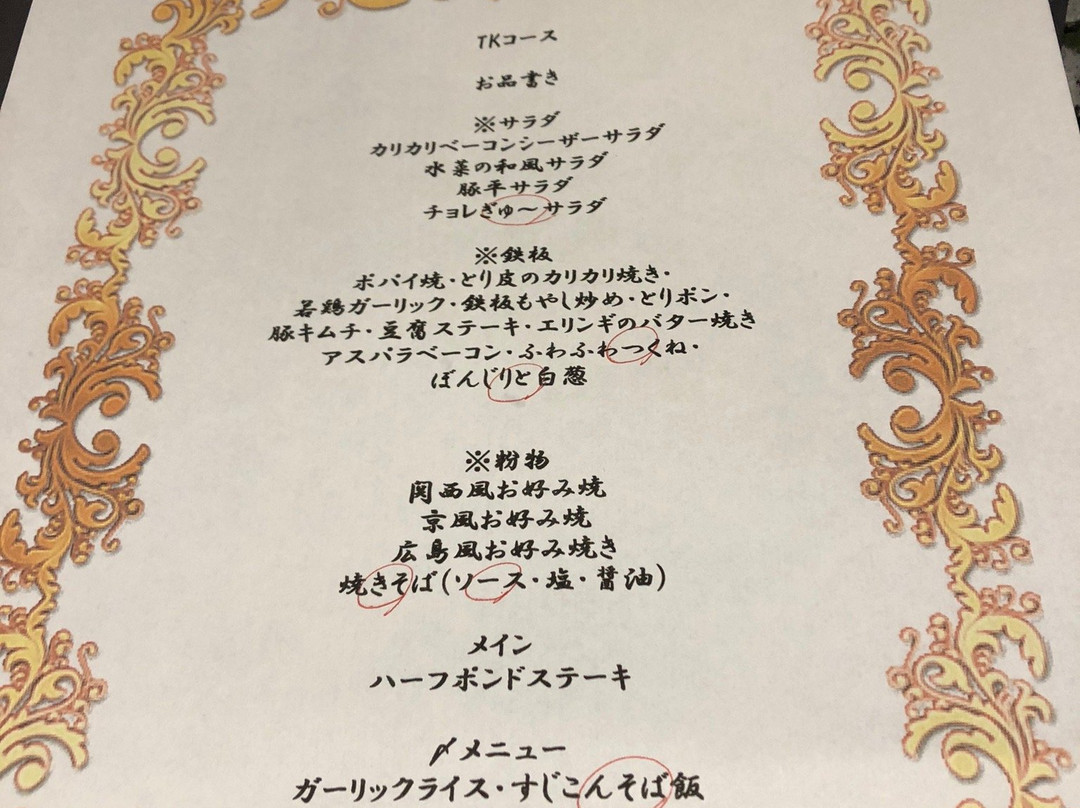 TKコース
お品書き
※サラダ
カリカリベーコンシーザーサラダ
水菜の和風サラダ
豚平サラダ
チョレぎゅ～サラダ
※鉄板
ポパイ焼・とり皮のカリカリ焼き・
若鶏ガーリック・鉄板もやし炒め・とりポン・
豚キムチ・豆腐ステーキ・エリンギのバター焼き
アスパラベーコン・ふわふわつくね・
ぼんじりと白葱
※粉物
関西風お好み焼
京風お好み焼
広島風お好み焼き
焼きそば(ソース・塩・醤油)
メイン
ハーフポンドステーキ
〆メニュー
ガーリックライス・すじこんそば飯